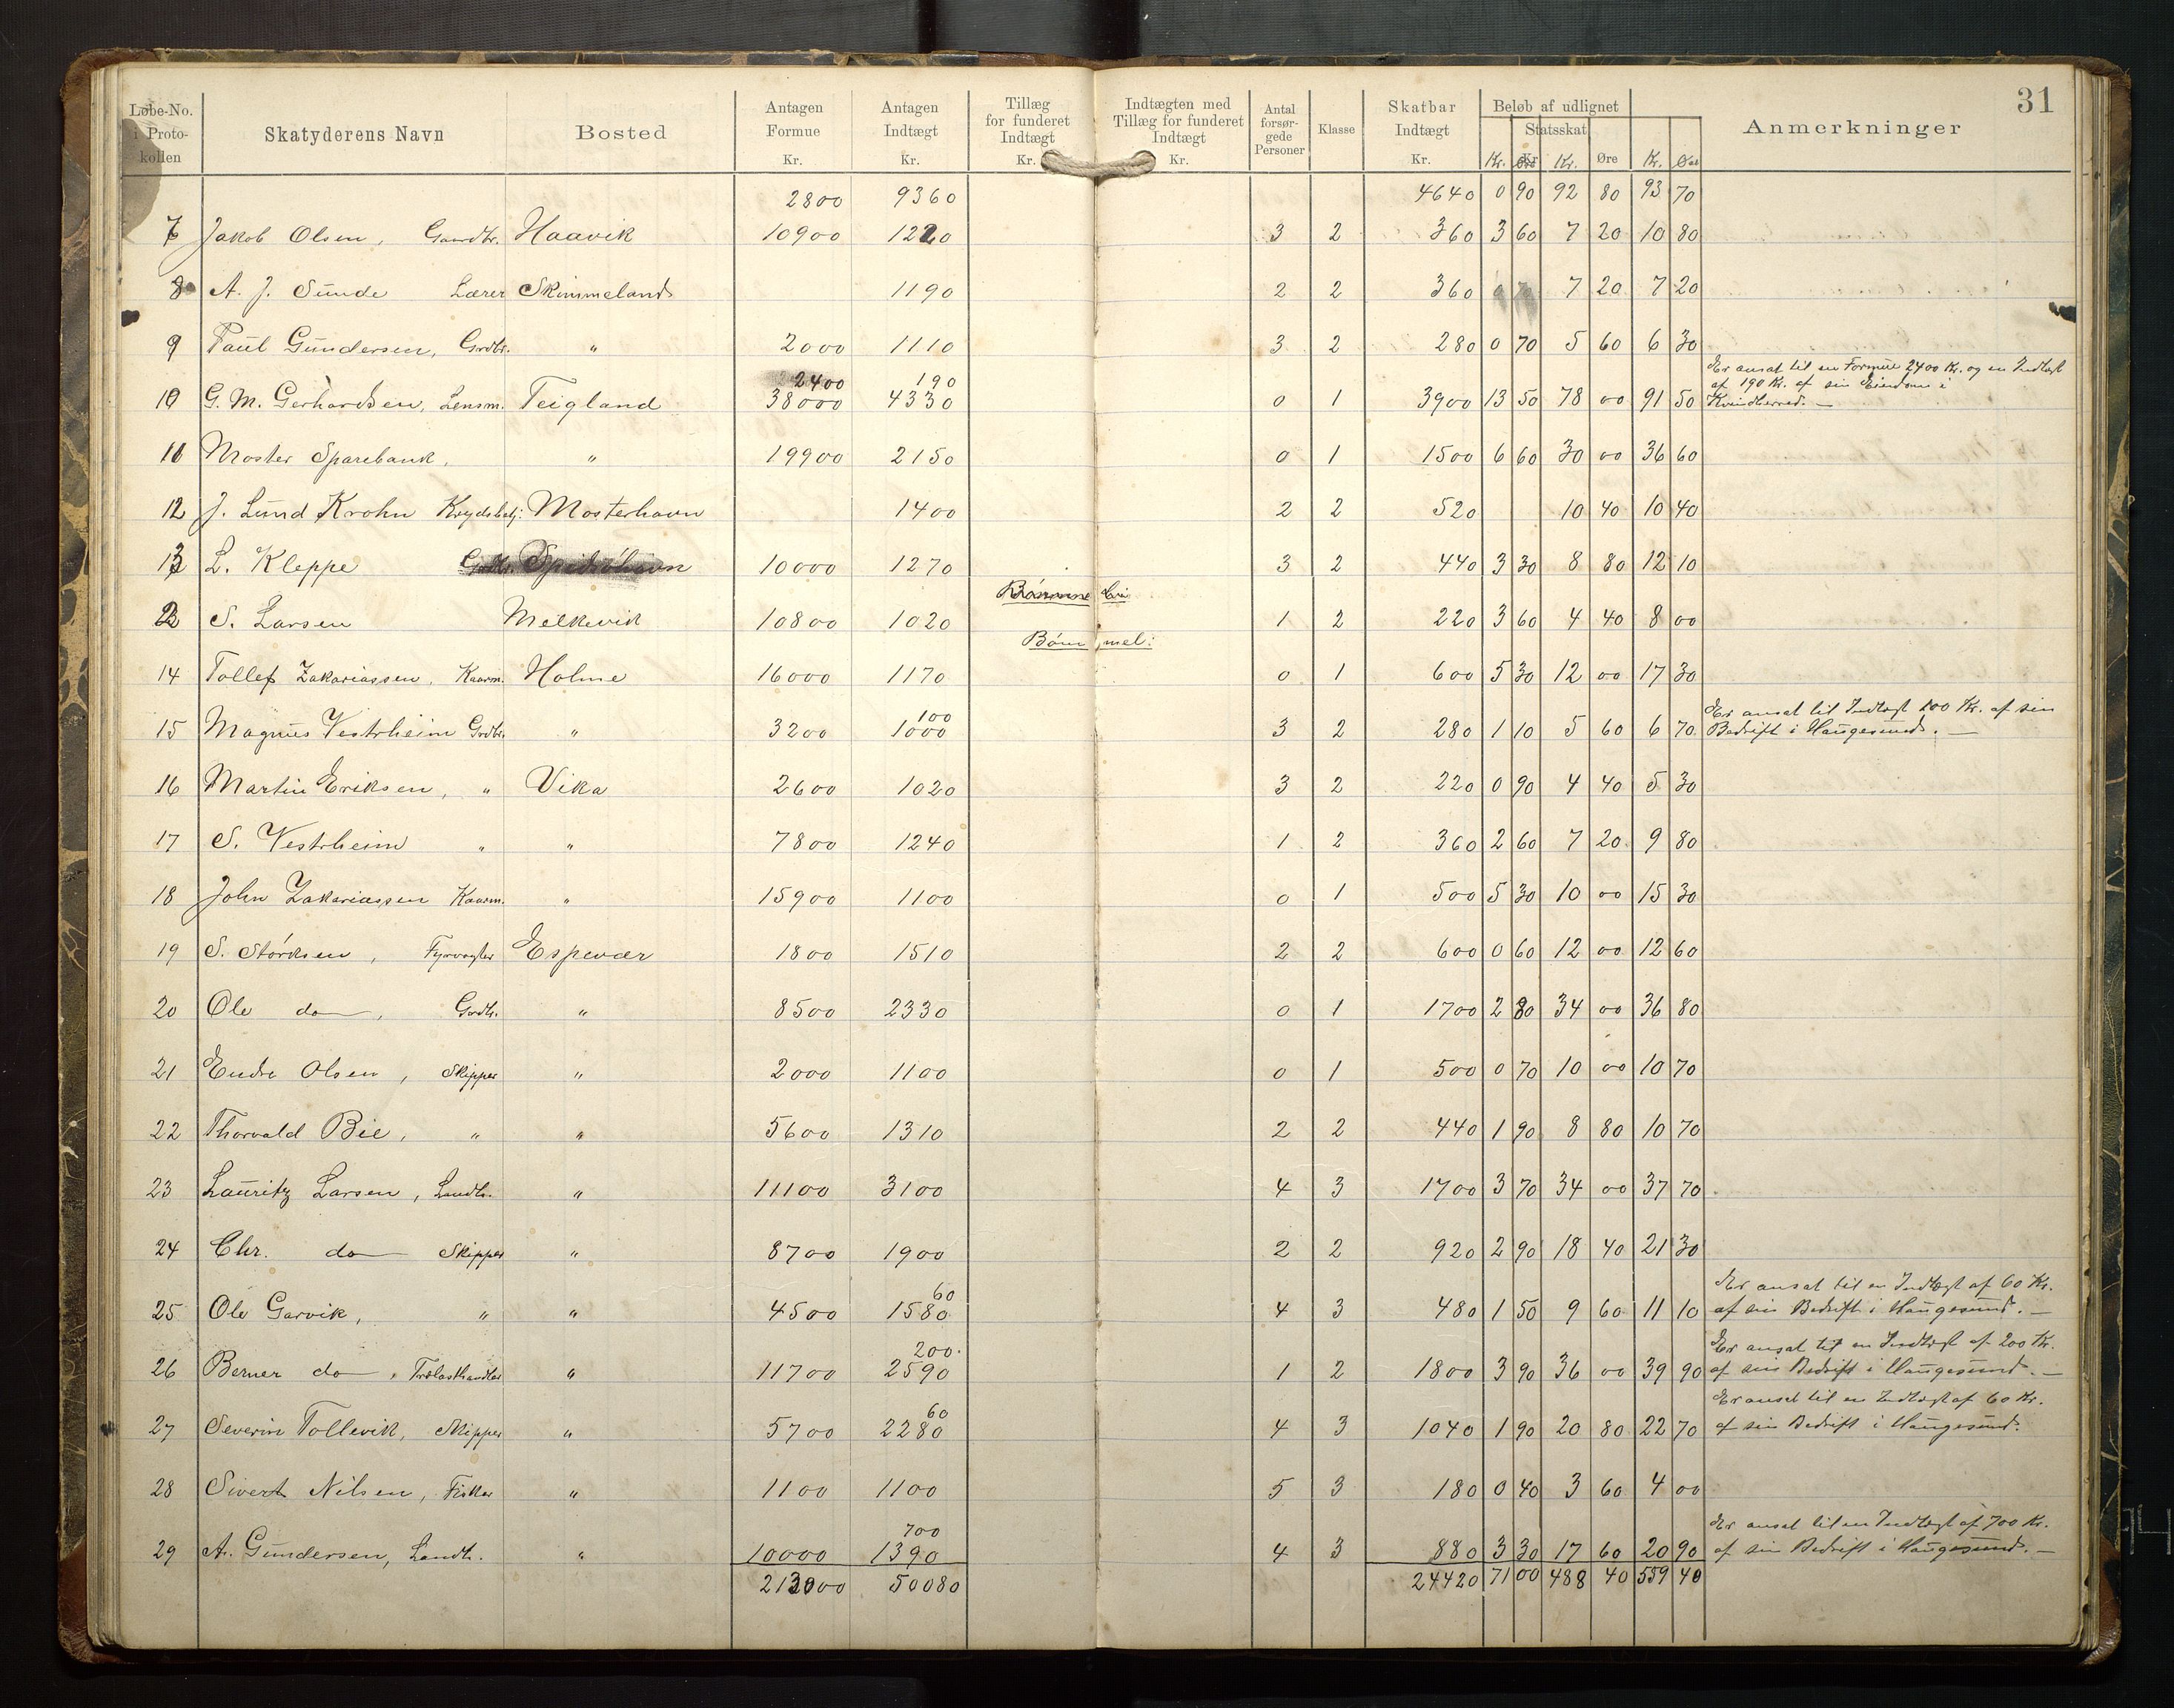 31
Løbe-No. i Proto-kollen | Skatyderens Navn | Bosted | Antagen Formue Kr. | Antagen Indtægt Kr. | Tillæg for funderet Indtægt Kr. | Indtægten med Tillæg for funderet Indtægt Kr. | Antal forsør-gede Personer | Klasse | Skatbar Indtægt Kr. | Beløb af udlignet Statsskat Kr. Øre Kr. Øre Kr. Øre | Anmerkninger
2800 9360 4640 0 90 92 80 93 70
7 Jakob Olsen, Gaardbr. Haavik 10900 1220 3 2 360 3 60 7 20 10 80
8 A. J. Sunde Lærer Skimmeland 1190 2 2 360 7 20 7 20
9 Paul Gundersen, Grdbr. " 2000 1110 3 2 280 0 70 5 60 6 30
2400 190 Er ansat til en Formue 2400 Kr. og en Indtægt
af 190 Kr. af sin Eiendom i
10 G. M. Gerhardsen, Lensm. Teigland 38000 4330 0 1 3900 13 50 78 00 91 50 Kvindherred. —
11 Moster Sparebank, " 19900 2150 0 1 1500 6 60 30 00 36 60
12 J. Lund Krohn Krydsbetj: Mosterhavn 1400 2 2 520 10 40 10 40
13 L. Kleppe Grdbr. 10000 1270 3 2 440 3 30 8 80 12 10
2 S. Larsen Melkevik 10800 1020 1 2 220 3 60 4 40 8 00
Bømmel:
14 Tollef Zakariassen, Kaarm. Holme 16000 1170 0 1 600 5 30 12 00 17 30
100 Er ansat til Indtægt 100 Kr. af sin
15 Magnus Vestrheim Grdbr. " 3200 1000 3 2 280 1 10 5 60 6 70 Bedrift i Haugesund. —
16 Martin Eriksen, " Vika 2600 1020 3 2 220 0 90 4 40 5 30
17 S. Vestrheim " " 7800 1240 1 2 360 2 60 7 20 9 80
18 John Zakariassen Kaarm. " 15900 1100 0 1 500 5 30 10 00 15 30
19 S. Størksen, Fyrvogter Espevær 1800 1510 2 2 600 0 60 12 00 12 60
20 Ole do, Grdbr. " 8500 2330 0 1 1700 2 80 34 00 36 80
21 Endre Olsen, Skipper " 2000 1100 0 1 500 0 70 10 00 10 70
22 Thorvald Bie, " " 5600 1310 2 2 440 1 90 8 80 10 70
23 Lauritz Larsen, Landh. " 11100 3100 4 3 1700 3 70 34 00 37 70
24 Chr. do Skipper " 8700 1900 2 2 920 2 90 18 40 21 30
60 Er ansat til en Indtægt af 60 Kr.
25 Ole Garvik, " " 4500 1580 4 3 480 1 50 9 60 11 10 af sin Bedrift i Haugesund. —
200 Er ansat til en Indtægt af 200 Kr.
26 Berner do, Trælasthandler " 11700 2590 1 2 1800 3 90 36 00 39 90 af sin Bedrift i Haugesund. —
60 Er ansat til en Indtægt af 60 Kr.
27 Severin Tollevik, Skipper " 5700 2280 4 3 1040 1 90 20 80 22 70 af sin Bedrift i Haugesund.
28 Sivert Nilsen, Fisker " 1100 1100 5 3 180 0 40 3 60 4 00
700 Er ansat til en Indtægt af 700 Kr.
29 A. Gundersen, Landh. " 10000 1390 4 3 880 3 30 17 60 20 90 af sin Bedrift i Haugesund. —
213000 50080 24420 71 00 488 40 559 40